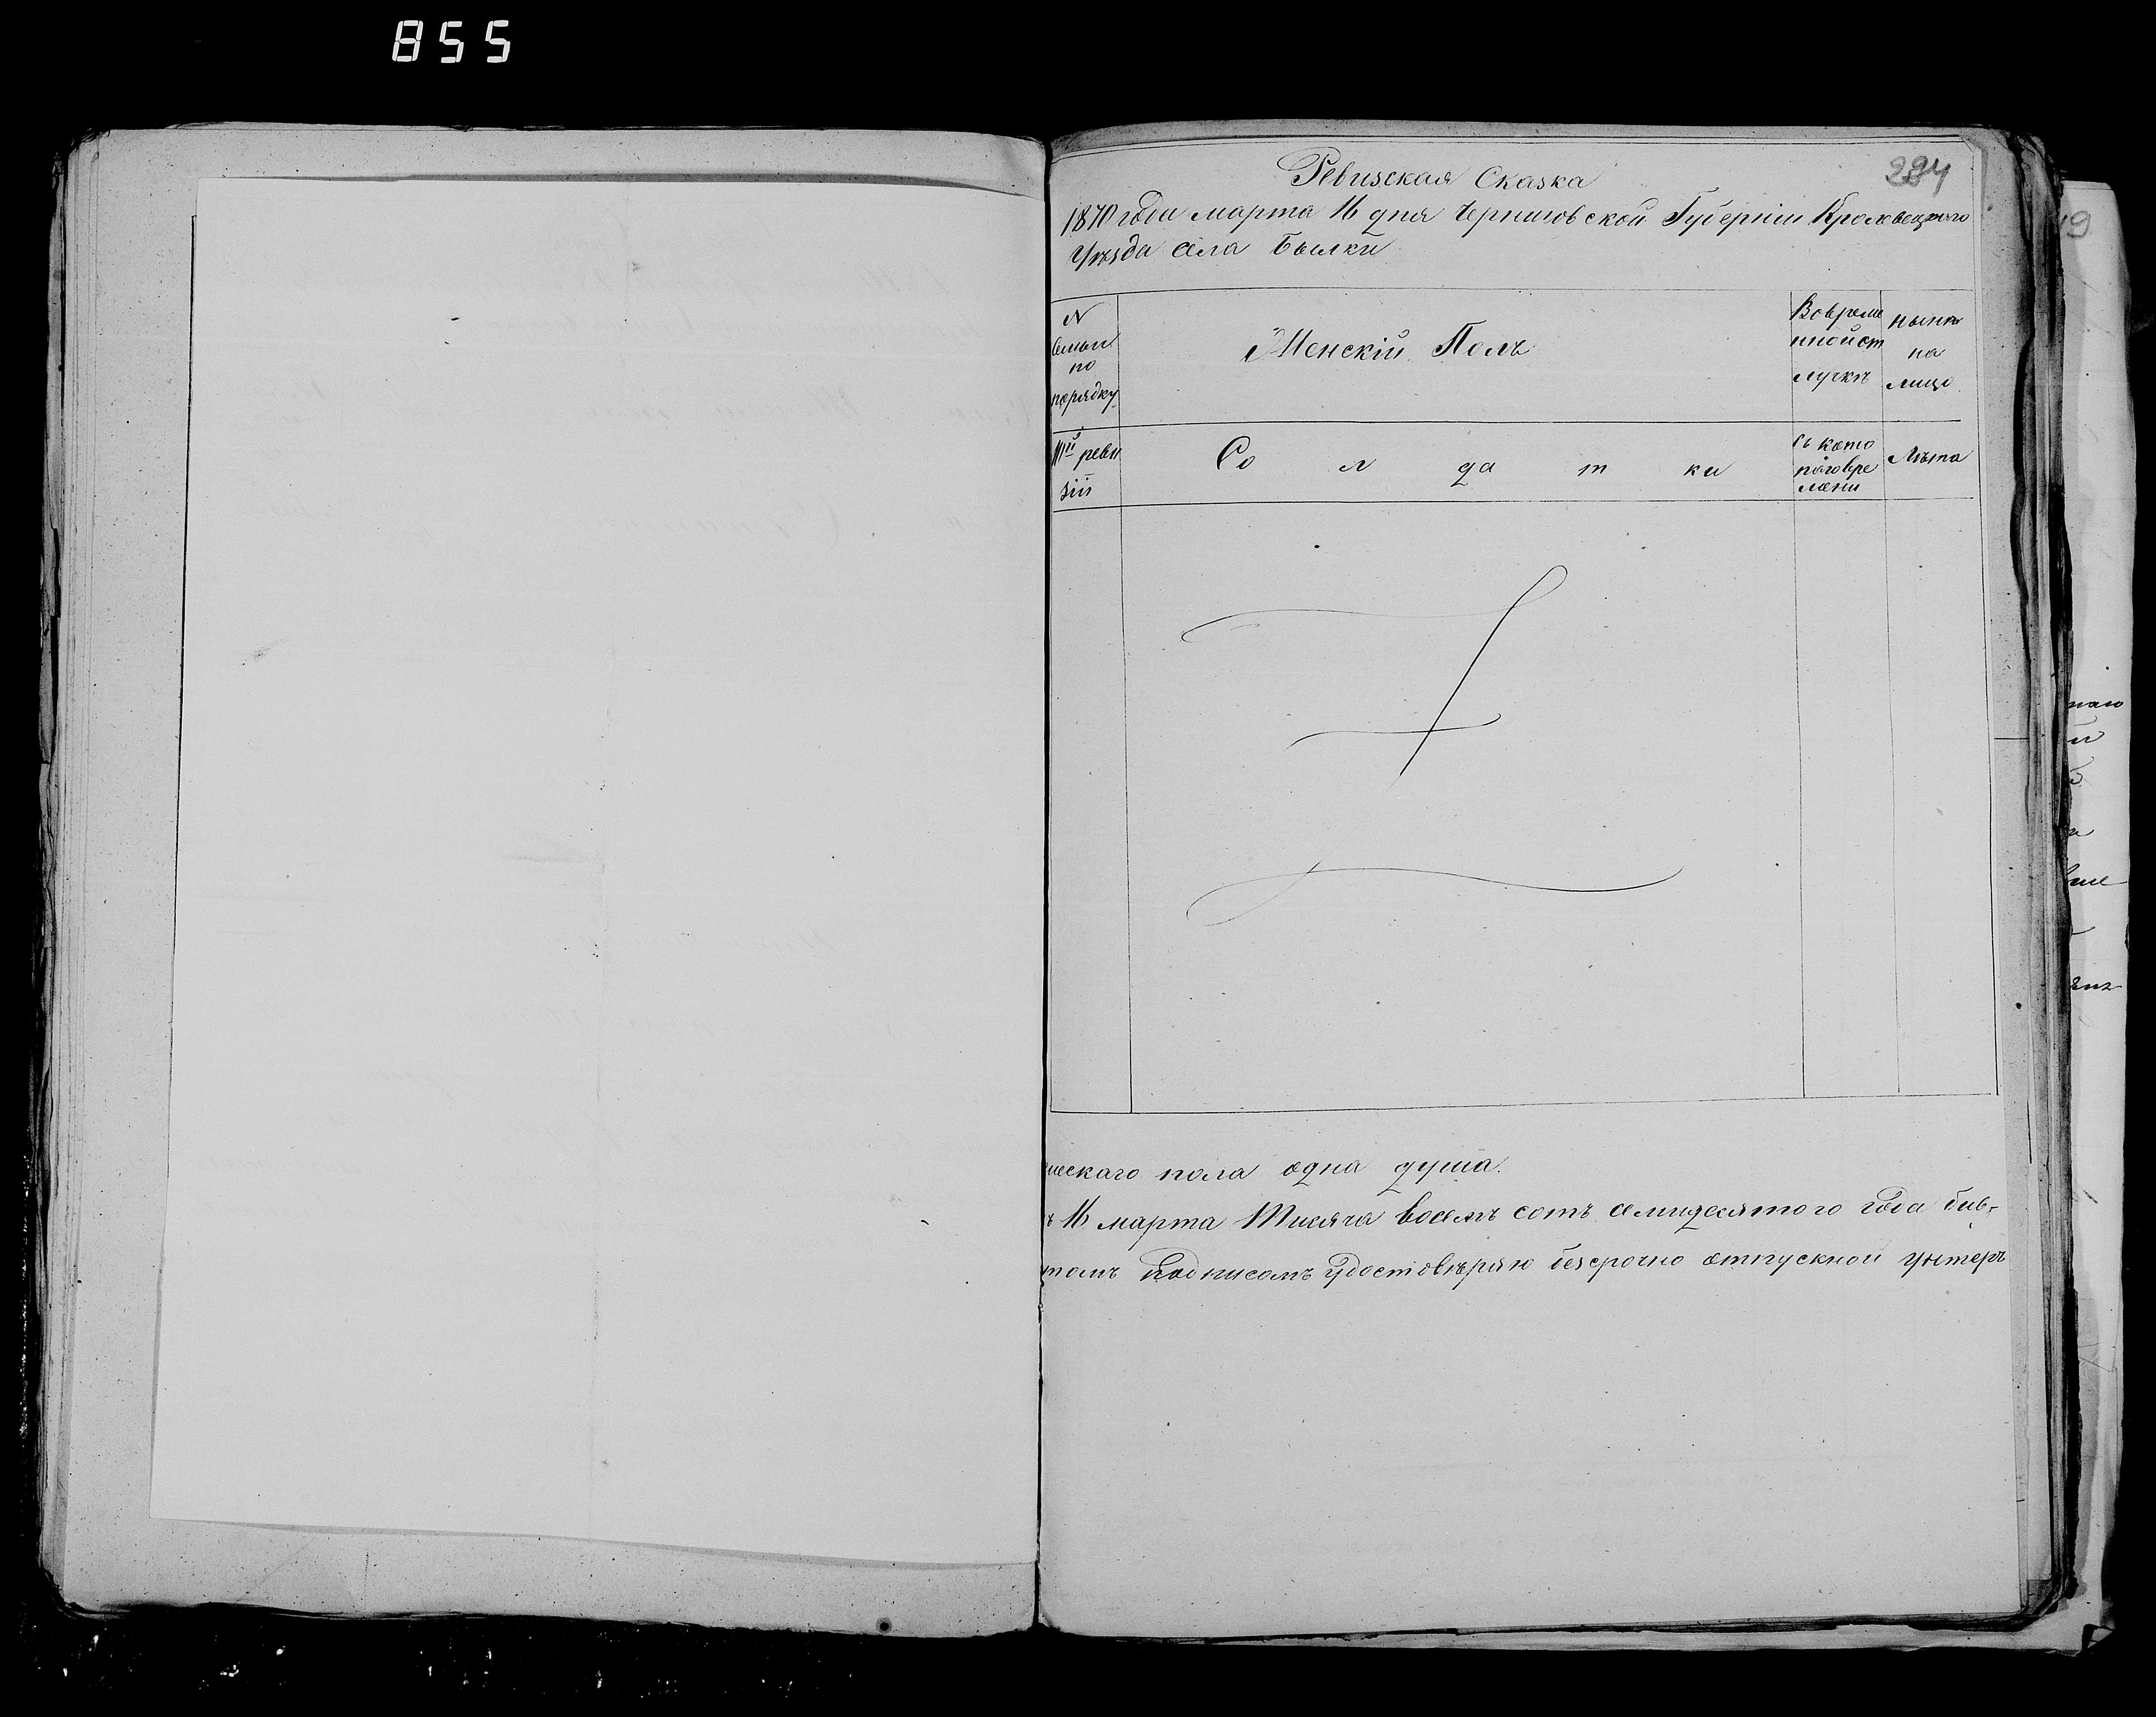 855
224
Ревизская Сказка
1870 года марта 16 дня Черниговской Губерніи Кролевецкого
Уѣзда Села Былки
N
Семьи
по
порядку
Женскій Полъ
Вовреме
нной от
лучкѣ
нынѣ
на
лицо
ревизіи
Со л да т ки
съ кото
раго вре
мени
Лѣта
19
ческаго пола одна душа.
16 марта Тисяча восемъ сотъ семидесятого года
Подписомъ Удостовѣряю безсрочно отпускной Унтеръ